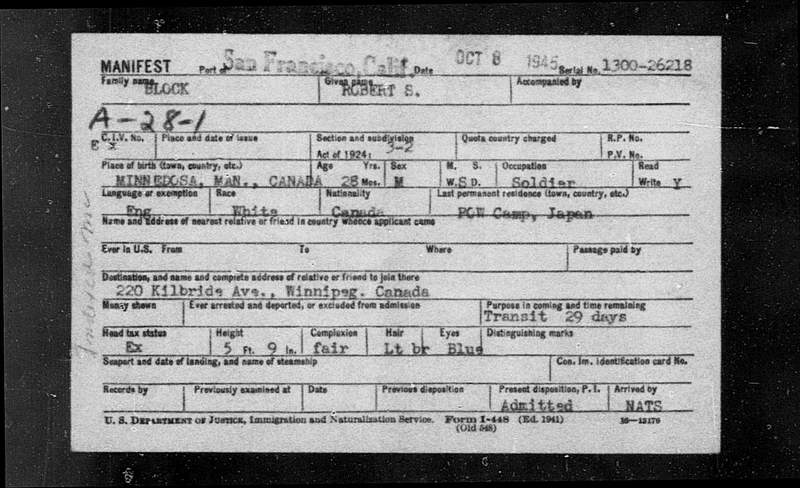 MANIFEST Port of San Francisco, Calif. Date OCT 8 1945 Serial No. 1300-26218
Family name Given name Accompanied by
BLOCK ROBERT S.
A-28-1
C.I.V. No. Place and date of issue Section and subdivision Quota country charged R.P. No.
Ex Act of 1924: 3-2 P.V. No.
Place of birth (town, country, etc.) Age Yrs. Sex M. S. Occupation Read
MINNEDOSA, MAN., CANADA 28 Mos. M W. S D. Soldier Write Y
Language or exemption Race Nationality Last permanent residence (town, country, etc.)
Eng White Canada POW Camp, Japan
Name and address of nearest relative or friend in country whence applicant came
Ever in U.S. From To Where Passage paid by
Destination, and name and complete address of relative or friend to join there
220 Kilbride Ave., Winnipeg. Canada
Money shown Ever arrested and deported, or excluded from admission Purpose in coming and time remaining
Transit 29 days
Head tax status Height Complexion Hair Eyes Distinguishing marks
Ex 5 Ft. 9 In. fair Lt br Blue
Seaport and date of landing, and name of steamship Can. Im. Identification card No.
Records by Previously examined at Date Previous disposition Present disposition, P. I. Arrived by
Admitted NATS
U. S. DEPARTMENT OF JUSTICE, Immigration and Naturalization Service. Form I-448 (Ed. 1941) 16-13179
(Old 548)